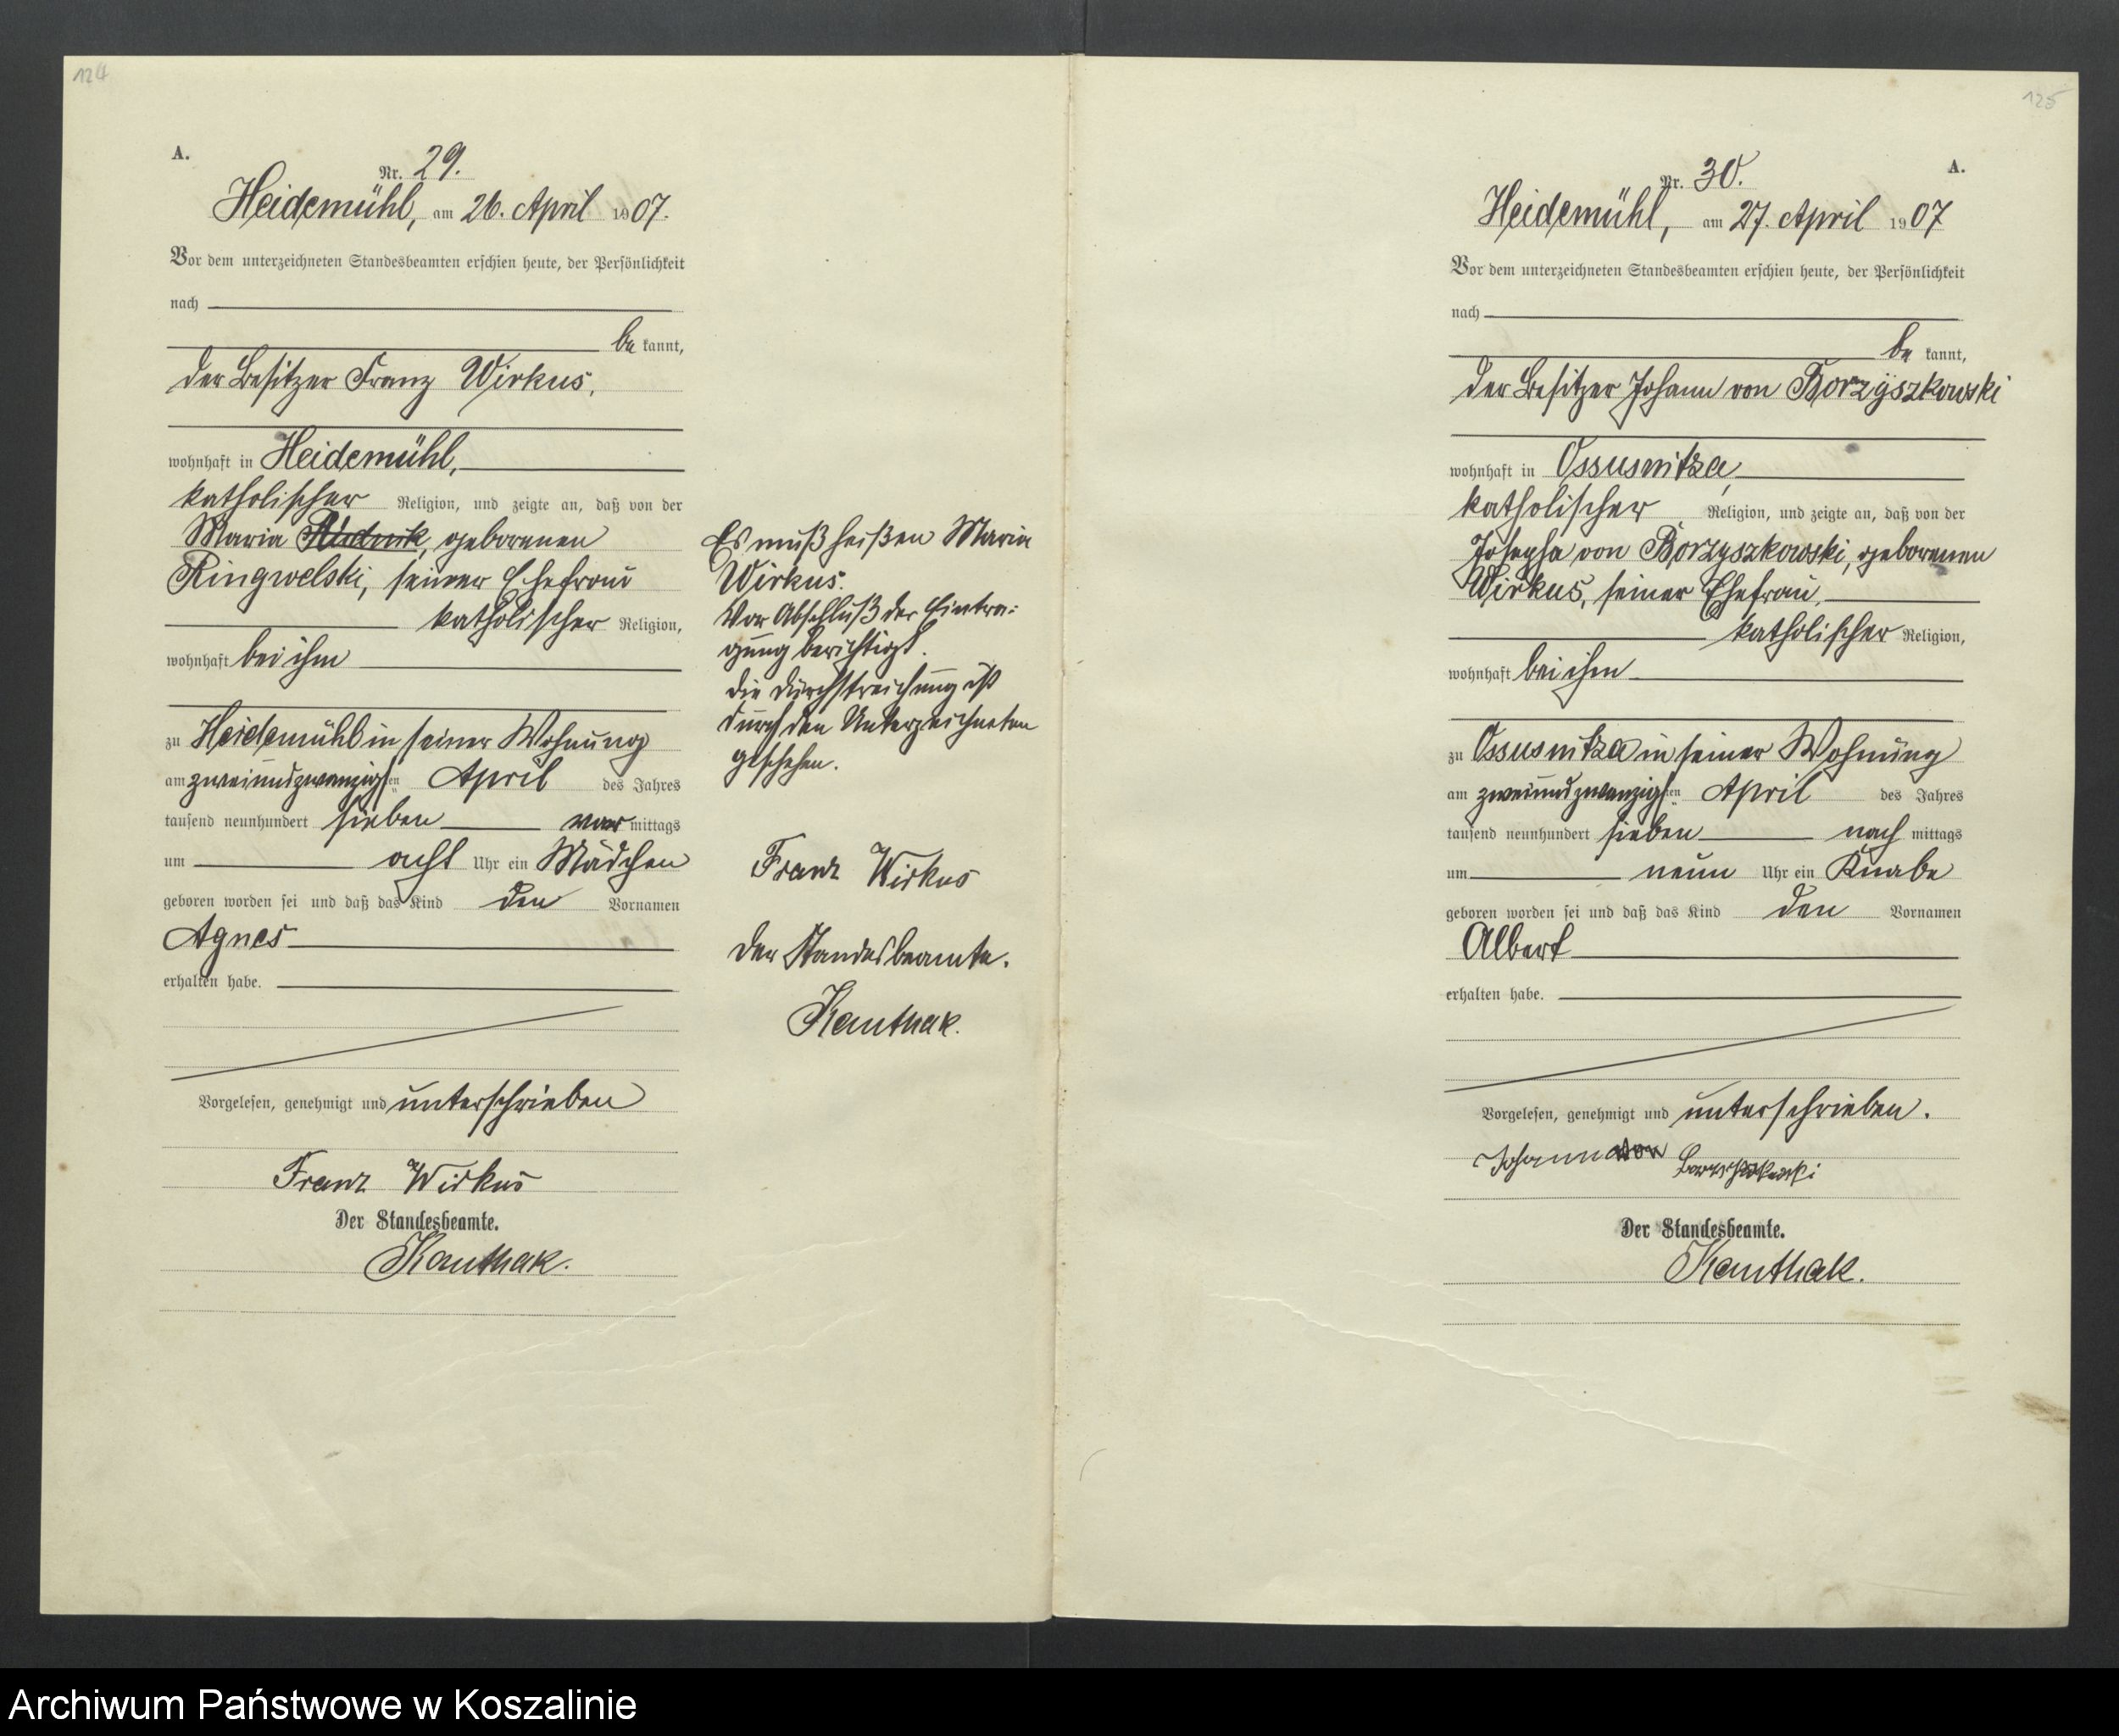 124
A.
Nr. 29.
Heidemühl, am 26. April 1907.
Vor dem unterzeichneten Standesbeamten erschien heute, der Persönlichkeit
nach
be kannt,
der Besitzer Franz Wirkus,
wohnhaft in Heidemühl,
katholischer Religion, und zeigte an, daß von der
Maria, geborenen
Ringwelski, seiner Ehefrau
katholischer Religion,
wohnhaft bei ihm
zu Heidemühl in seiner Wohnung
am zweiundzwanzigsten April des Jahres
tausend neunhundert sieben vor mittags
um acht Uhr ein Mädchen
geboren worden sei und daß das Kind den Vornamen
Agnes
erhalten habe.
Vorgelesen, genehmigt und unterschrieben
Franz Wirkus
Der Standesbeamte.
Kauthak.
Es muß heißen Maria
Wirkus.
Vor Abschluß der Eintra-
gung berichtigt.
Die Durchstreichung ist
durch den Unterzeichneten
geschehen.
Franz Wirkus
Der Standesbeamte.
Kauthak.
125
A.
Nr. 30.
Heidemühl, am 27. April 1907
Vor dem unterzeichneten Standesbeamten erschien heute, der Persönlichkeit
nach
be kannt,
der Besitzer Johann von Borzyszkowski
wohnhaft in Ossusnitza,
katholischer Religion, und zeigte an, daß von der
Josepha von Borzyszkowski, geborenen
Wirkus, seiner Ehefrau,
katholischer Religion,
wohnhaft bei ihm
zu Ossusnitza in seiner Wohnung
am zweiundzwanzigsten April des Jahres
tausend neunhundert sieben nach mittags
um neun Uhr ein Knabe
geboren worden sei und daß das Kind den Vornamen
Albert
erhalten habe.
Vorgelesen, genehmigt und unterschrieben.
Johann von
Der Standesbeamte.
Kauthak.
Archiwum Państwowe w Koszalinie